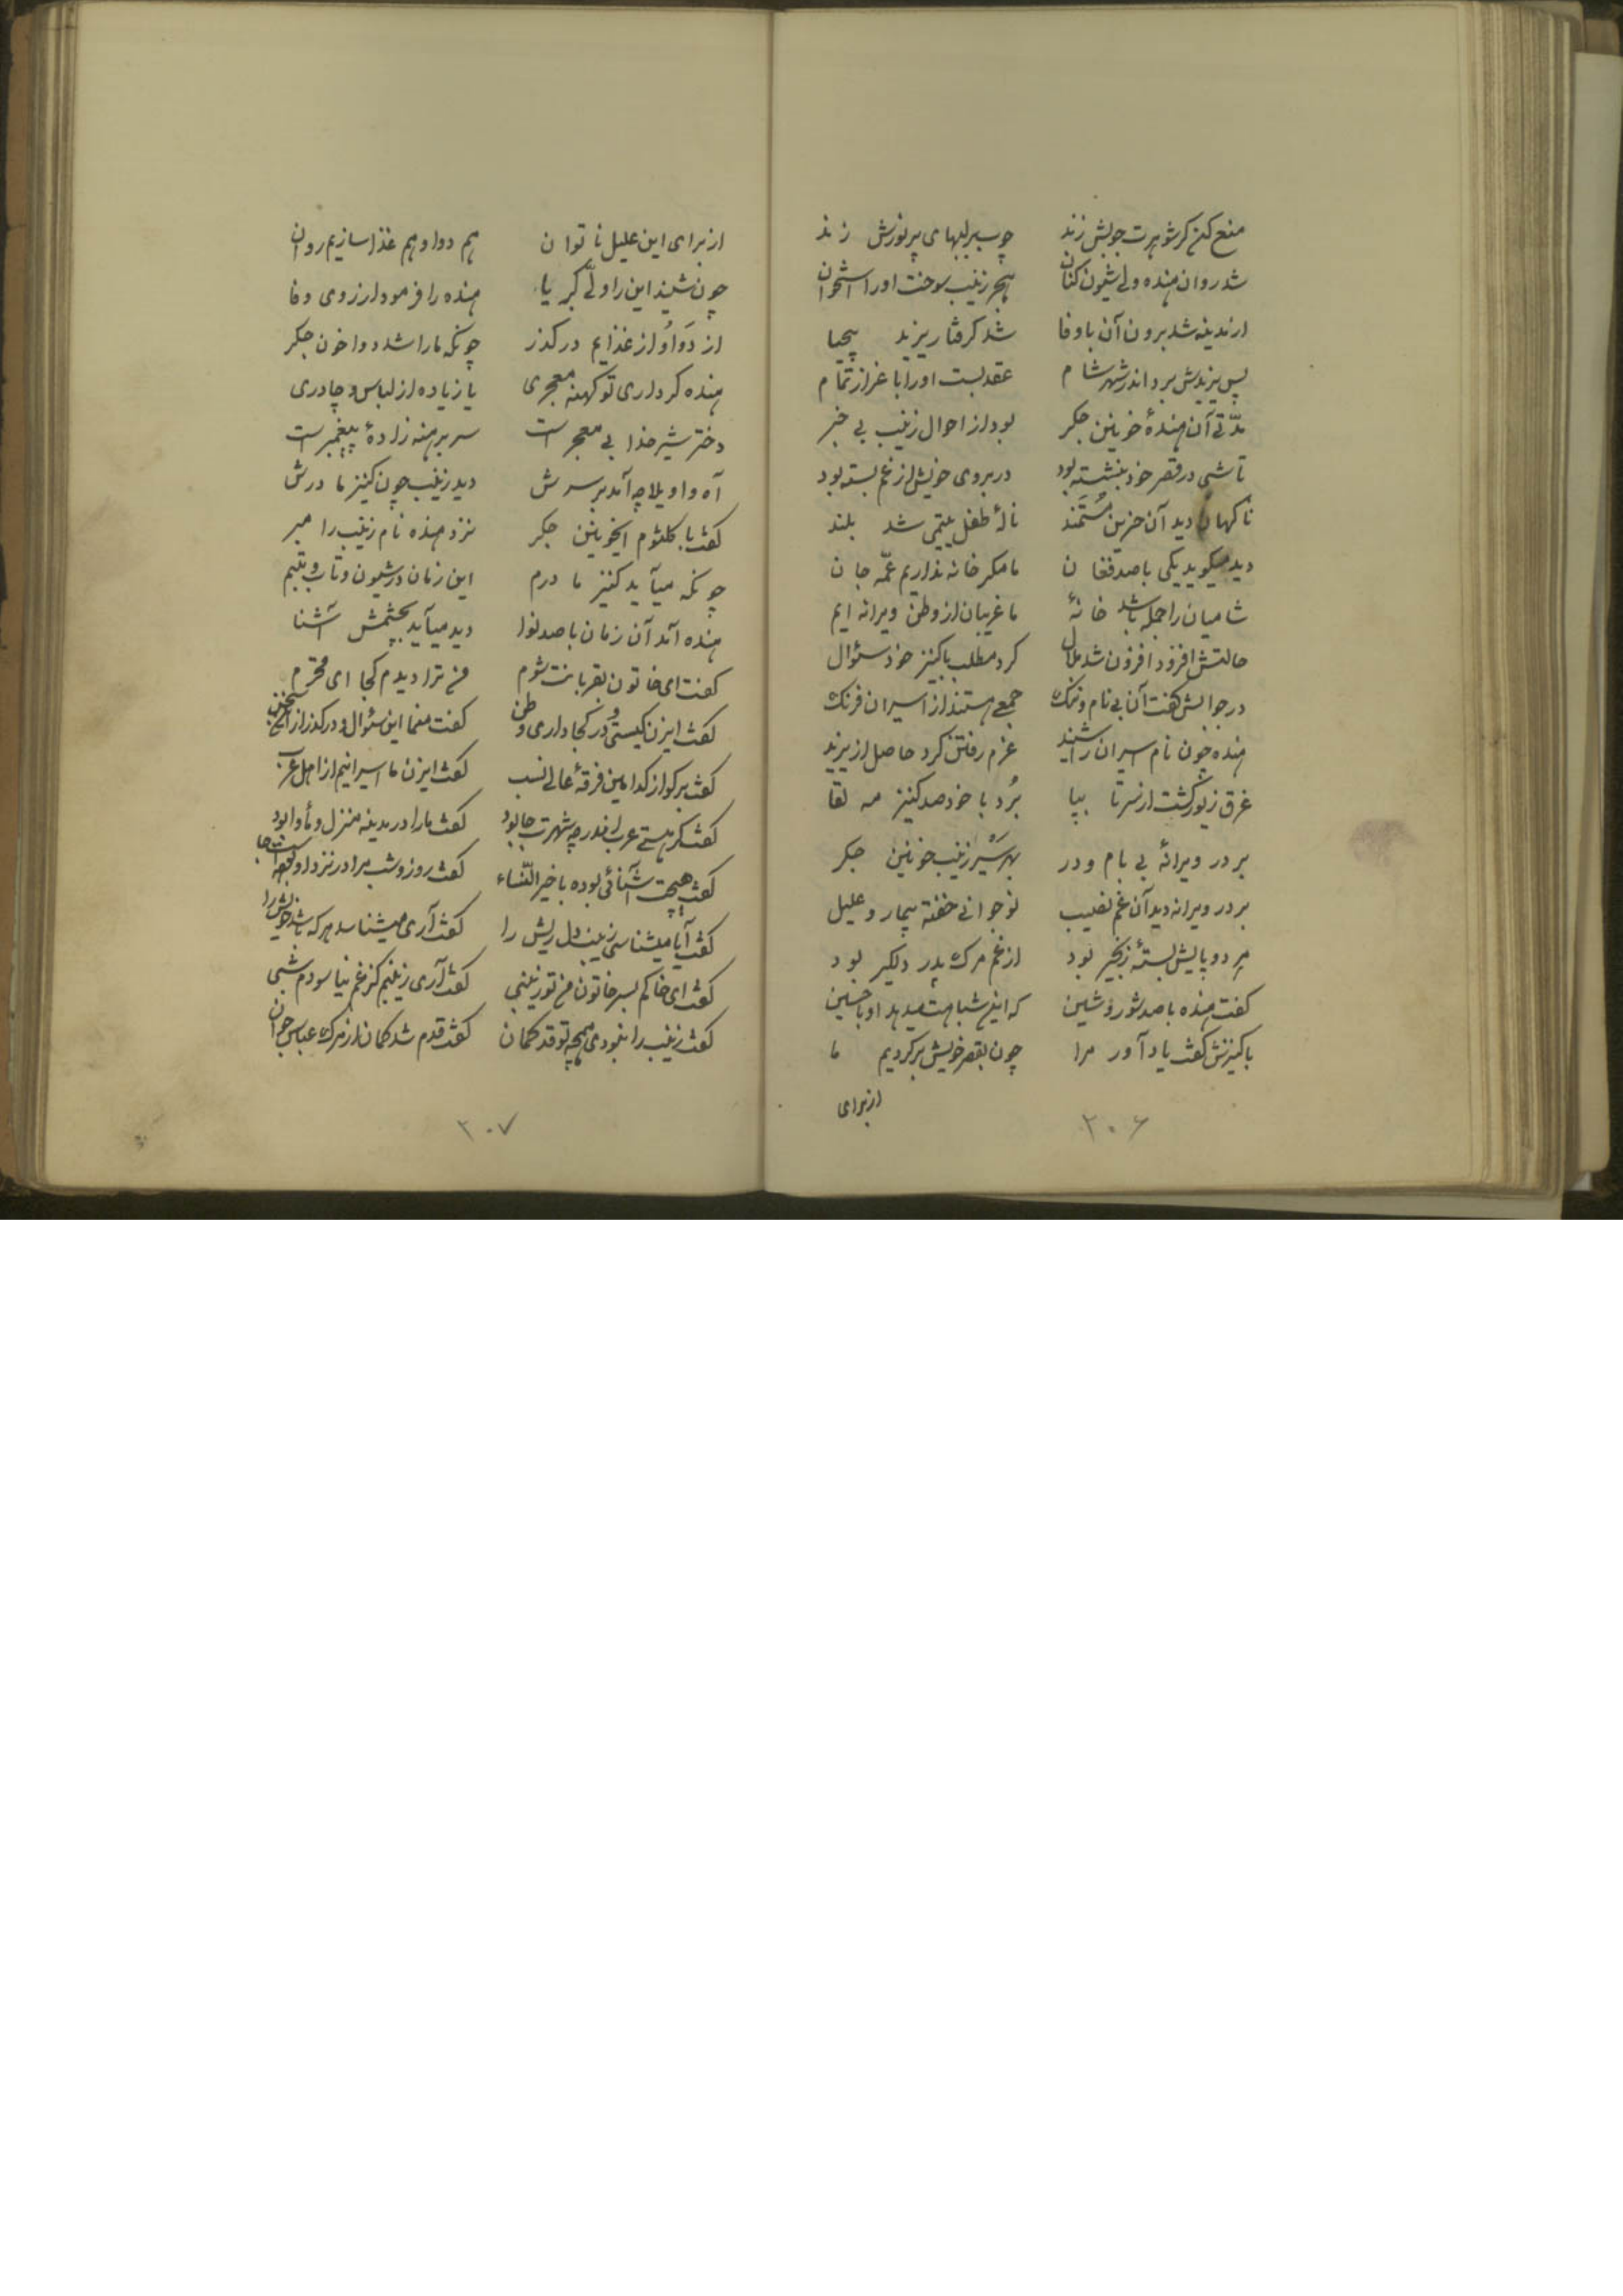 منع کن کر شوهرت چوبش زند چوب بر لبهای پر نورش زند
شد روان هنده ولی شیون کنان هجر زینب سوخت او را استخوان
از مدینه شد برون آن با وفا شد کرفتار یزید بیحیا
پس یزیدش برد اندر شهر شام عقد بست او را با عزاز تمام
مدّتی آن هندهٔ خونین جکر بود از احوال زینب بی خبر
تا شبی در قصر خود بنشسته بود در بروی خویش از غم بسته بود
ناکهان دید آن حزین مستمند نالهٔ طفل یتیمی شد بلند
دید میکوید یکی با صد فغان ما مکر خانه نداریم عمّه جان
شامیان را جمله باشد خانهٔ ما غریبان از وطن ویرانه ایم
حالتش افزود افزون شد ملال کرد مطلب با کنیز خود سئوال
در جوابش کفت آن بی نام و ننک جمعی هستند از اسیران فرنک
هنده چون نام اسیران را شنید عزم رفتن کرد حاصل از یزید
غرق زیور کشت از سر تا بپا بُرد با خود صد کنیز مه لقا
بر در ویرانهٔ بی بام و در بهر سَیْر زینب خونین جکر
بر در ویرانه دید آن غم نصیب نوجوانی خفته بیمار و علیل
هر دو پایش بستهٔ زنجیر بود از غم مرک پدر دلکیر بود
کفت هنده با صد شور و شین که این شباهت میدهد او با حسین
با کنیزش کفت یاد آور مرا چون بقصر خویش برکردیم ما
از برای
۲۰۶
از برای این علیل ناتوان هم دوا و هم غذا سازیم روان
چون شنید این را ولیّ کبریا هنده را فرمود از روی وفا
از دَوا وُ از غذایم در کذر چونکه ما را شد دوا خون جکر
هنده کر داری تو کهنه معجری یا زیاده از لباس و چادری
دختر شیر خدا بی معجر است سر برهنه زادهٔ پیغمبر است
آه و اویلا چه آمد بر سرش دید زینب چون کنیز مادرش
کفت با کلثوم ایخونین جکر نزد هنده نام زینب را مبر
چونکه میآید کنیز مادرم این زمان در شیون و تاب و تبیم
هنده آمد آن زمان با صد نوا دید میآید بچشمش آشنا
کفت ای خاتون بقربانت شوم من ترا دیدم کجا ای محترم
کفت ایزن کیستی و در کجا داری وطن کفت منما این سئوال و در کذر از این سخن
کفت بر کو از کدامین فرقهٔ عالی نسب کفت ایزن ما اسیرانیم از اهل عرب
کفت کر هستی عرب اندر چه شهرت جا بود کفت ما را در مدینه منزل و مأوا بود
کفت هیچت آشنائی بوده با خیر النّساء کفت روز و شب مرا در نزد او بوده است جا
کفت آیا میشناسی زینب دل ریش را کفت آری میشناسد هر که باشد خویش را
کفت ای خاکم بسر خاتون من تو زینبی کفت آری زینبم کز غم نیاسودم شبی
کفت زینب را نبودی همچه تو قد کمان کفت قدم شد کمان از مرک عباس جوان
۲۰۷